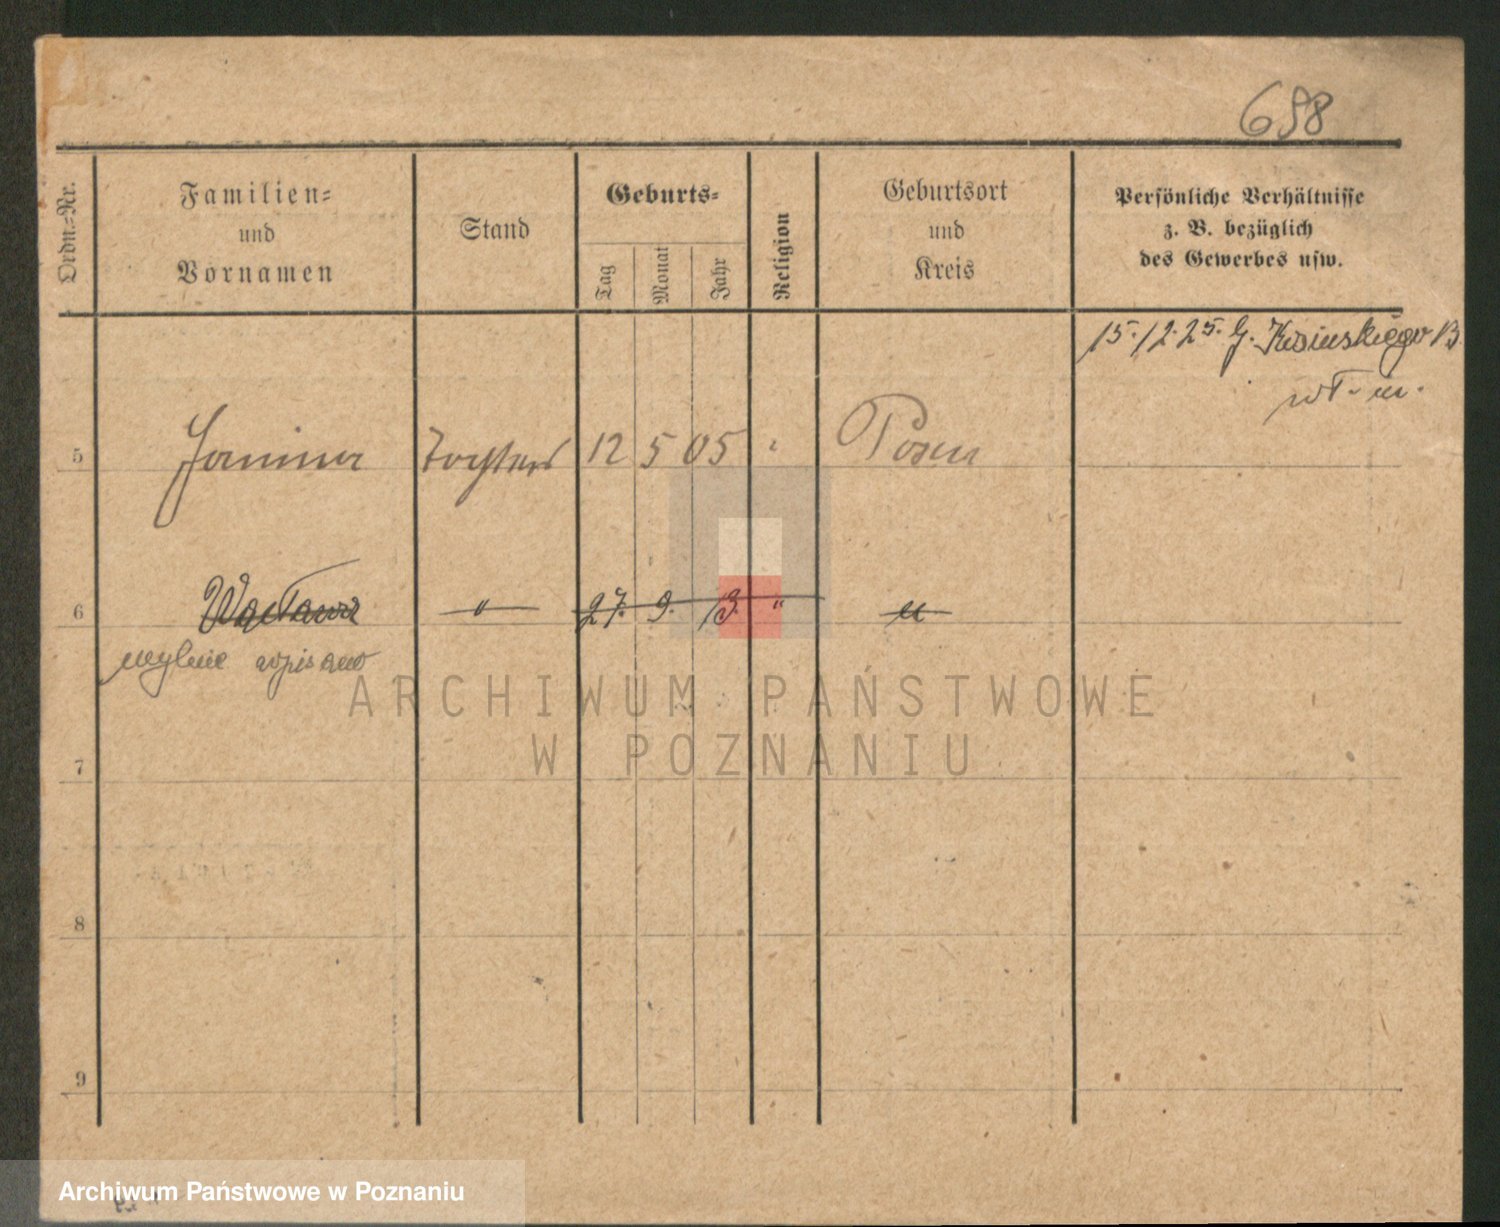 698
Ordn.-Nr.
Familien-
und
Vornamen
Stand
Geburts-
Tag
Monat
Jahr
Religion
Geburtsort
und
Kreis
Persönliche Verhältnisse
z. B. bezüglich
des Gewerbes usw.
15.12.25. G.
5 Janina Tochter 12 5 05 " Posen
6 Wacława " 27. 9. 13. " "
mylnie wpisano
7
8
9
ARCHIWUM PAŃSTWOWE
W POZNANIU
Archiwum Państwowe w Poznaniu